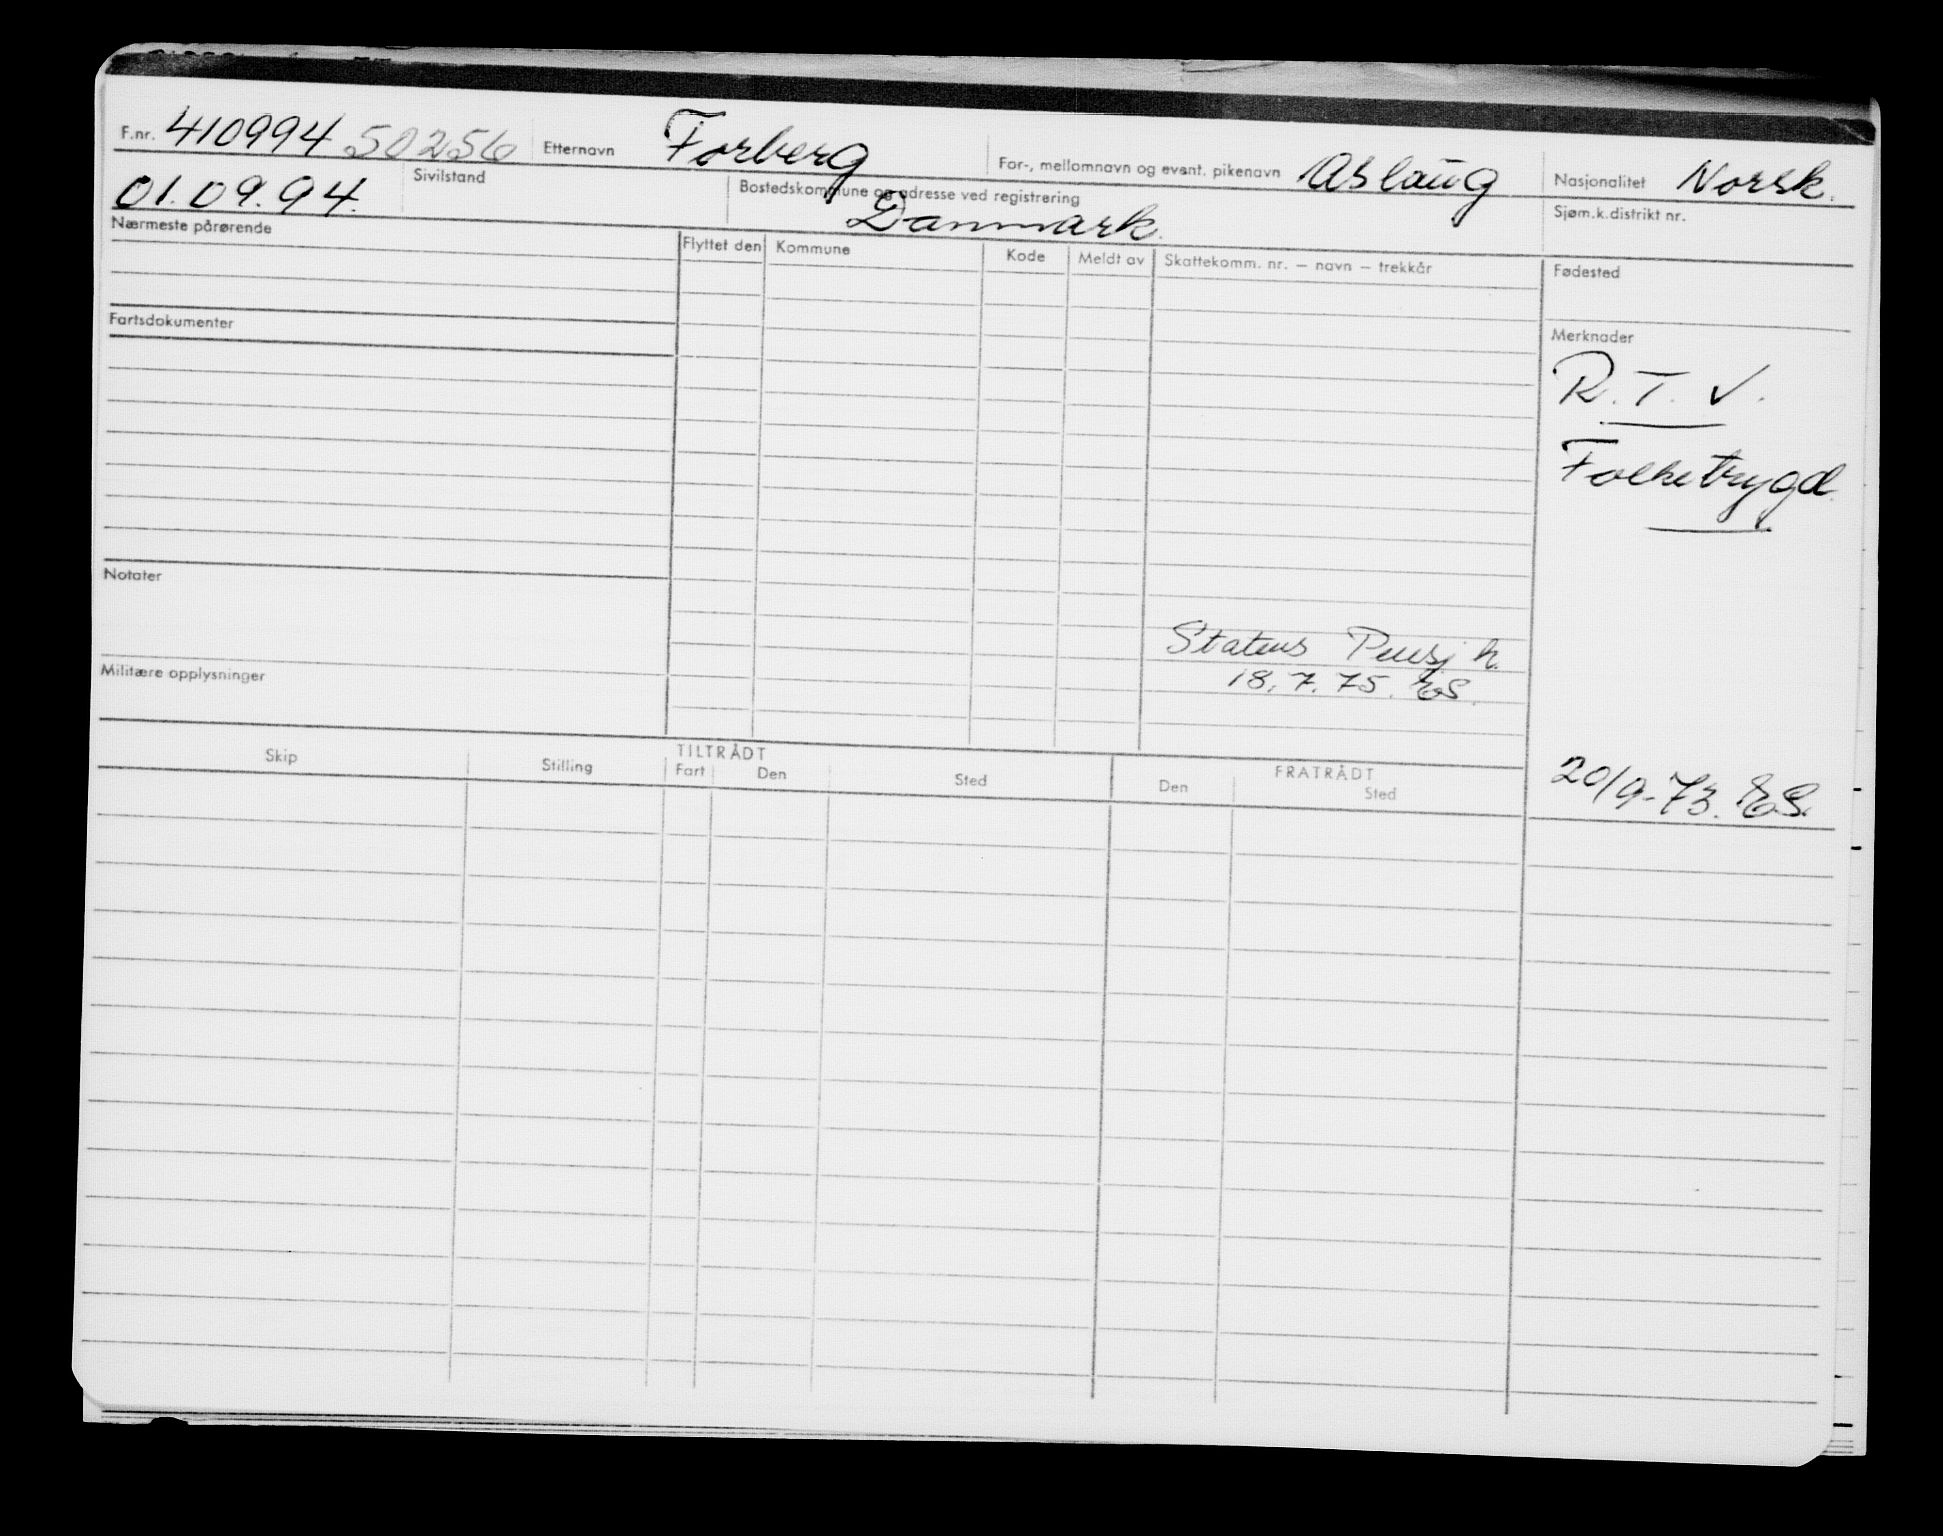 F.nr. 410994 50256 Etternavn Forberg For-, mellomnavn og event. pikenavn Aslaug Nasjonalitet Norsk.
01.09.94. Sivilstand Bostedskommune og adresse ved registrering Danmark. Sjøm.k.distrikt nr.
Nærmeste pårørende Flyttet den Kommune Kode Meldt av Skattekomm. nr. – navn – trekkår Fødested
Fartsdokumenter Merknader
R.T.V.
Folketrygd.
Notater
Statens Pensj k.
Militære opplysninger 18.7.75. ES.
Skip Stilling TILTRÅDT Fart Den Sted FRATRÅDT Den Sted
20/9-73. ES.